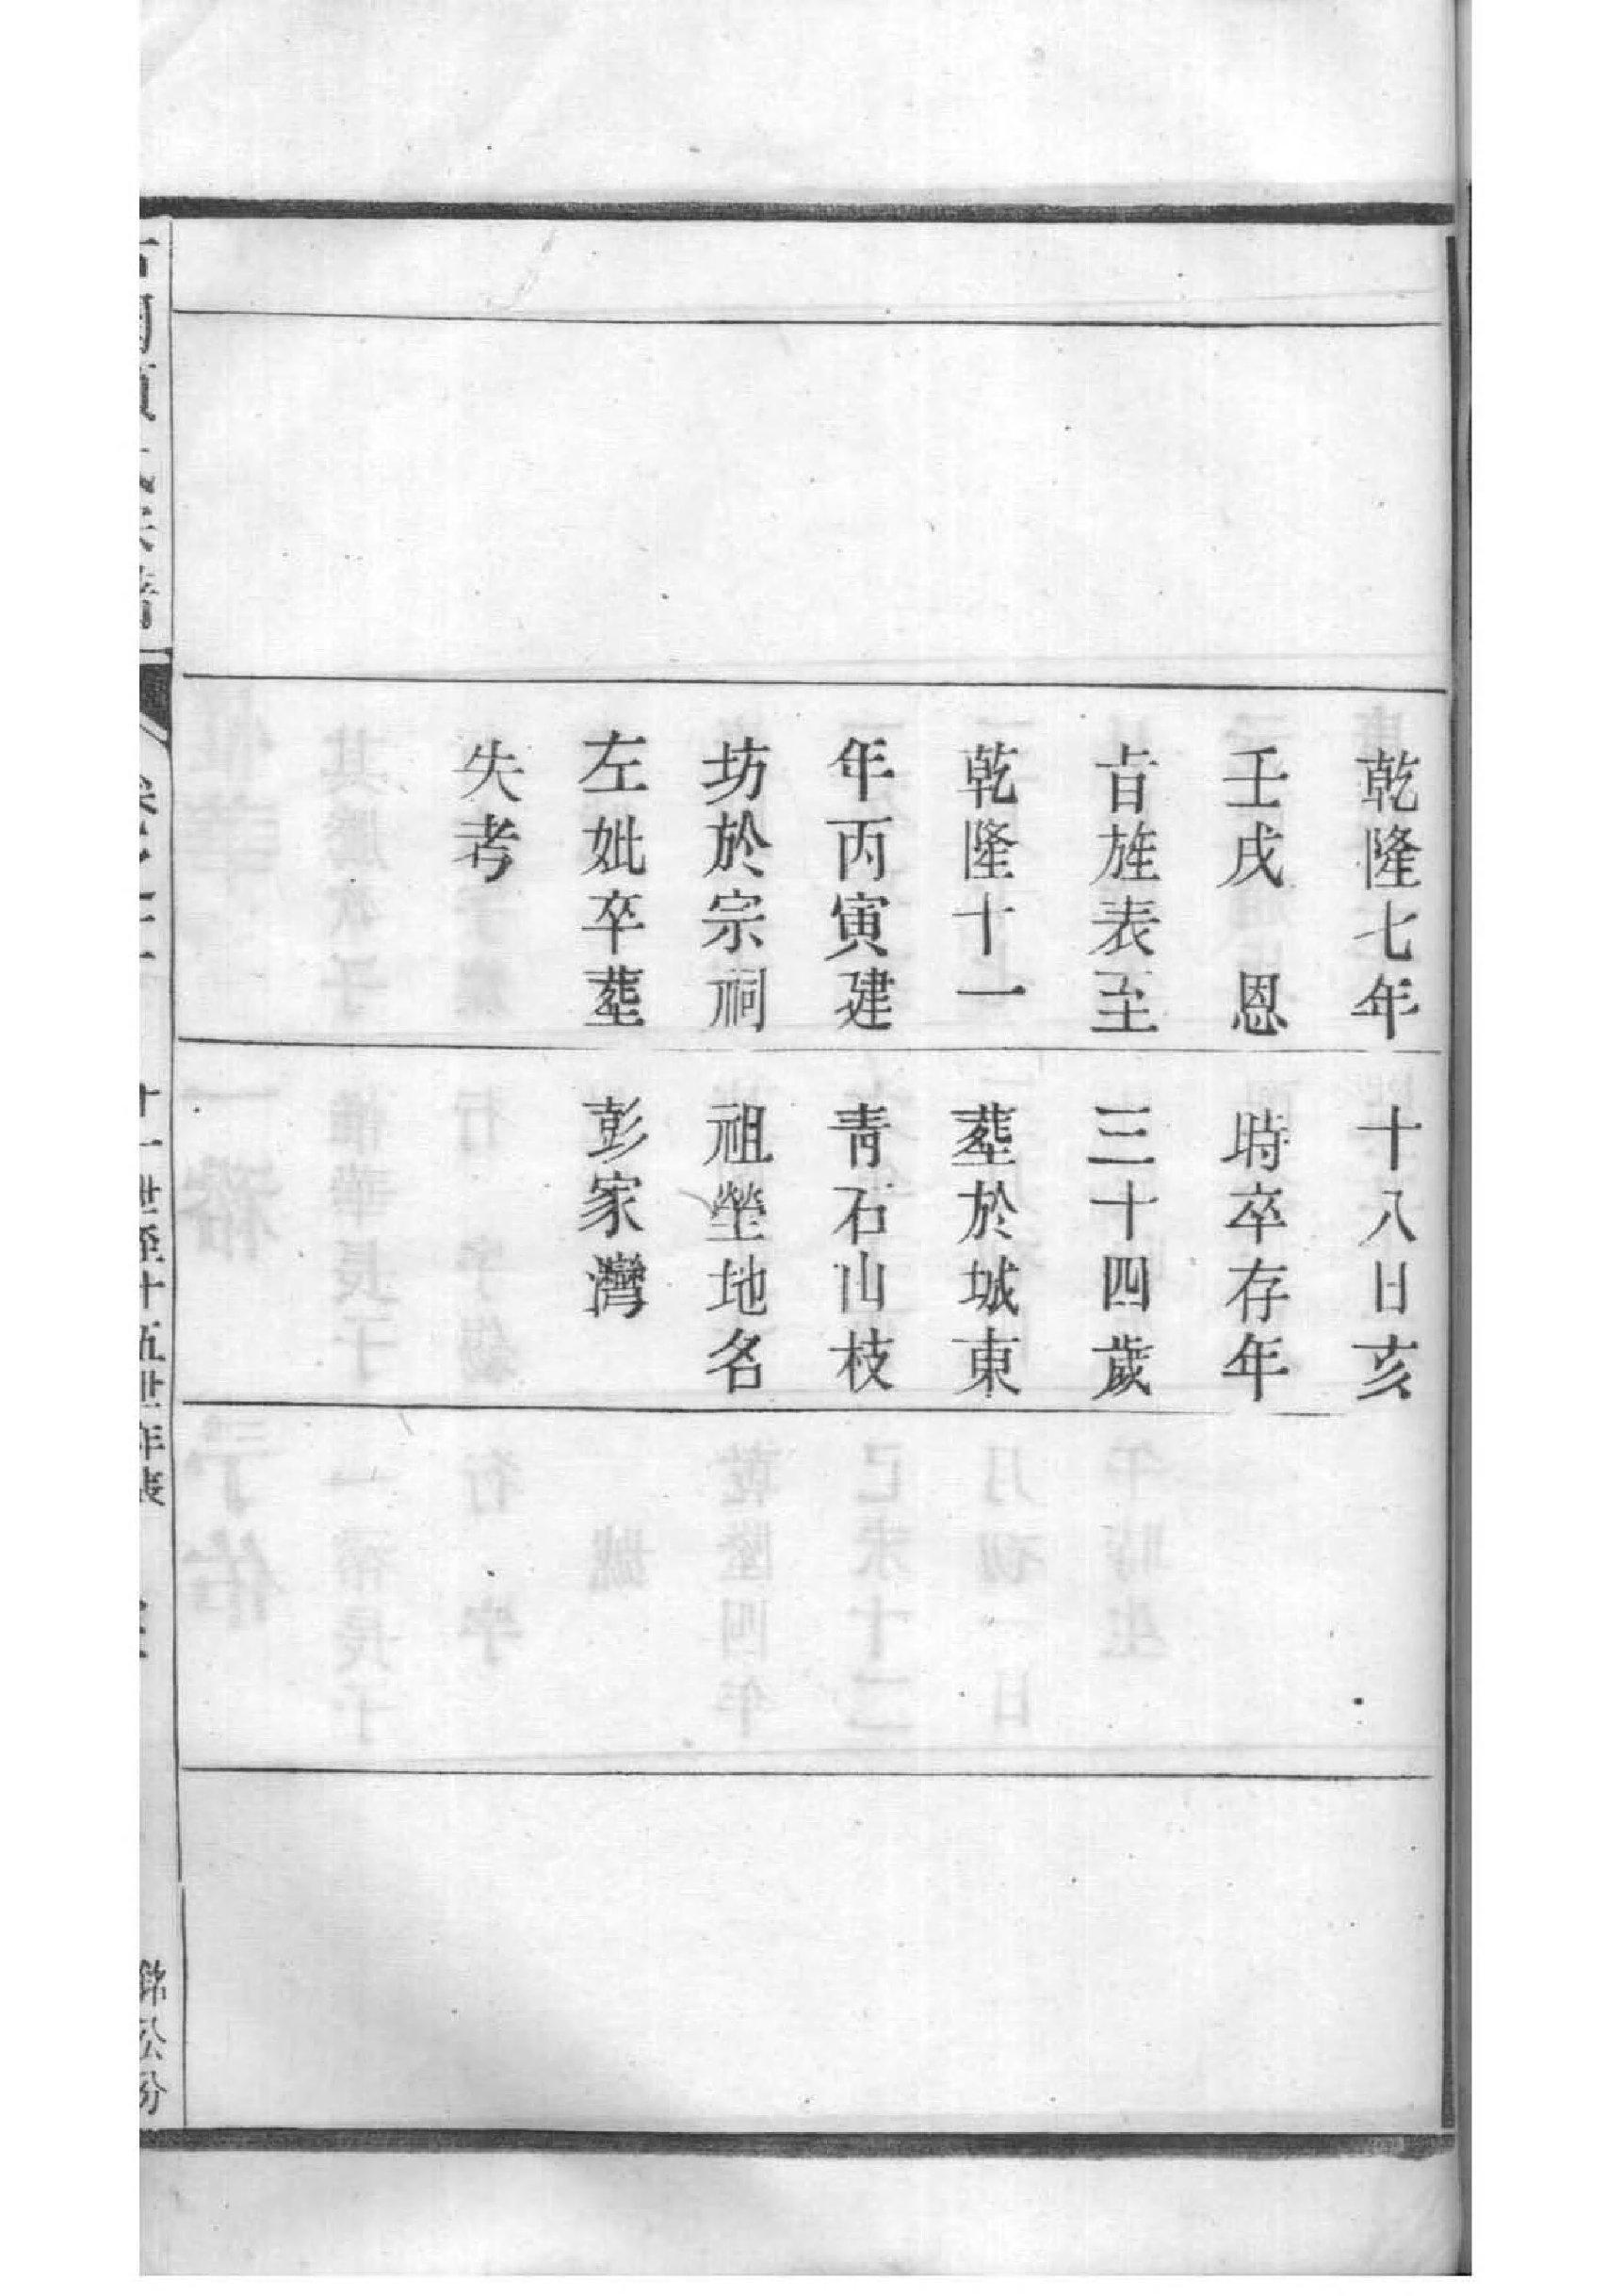 乾隆七年
壬戌　恩
旨旌表至
乾隆十一
年丙寅建
坊於宗祠
左妣卒塟
失考
十八日亥
時卒存年
三十四歲
塟於城東
青石山枝
祖塋地名
彭家灣
十一世至十五世年表
銘公分